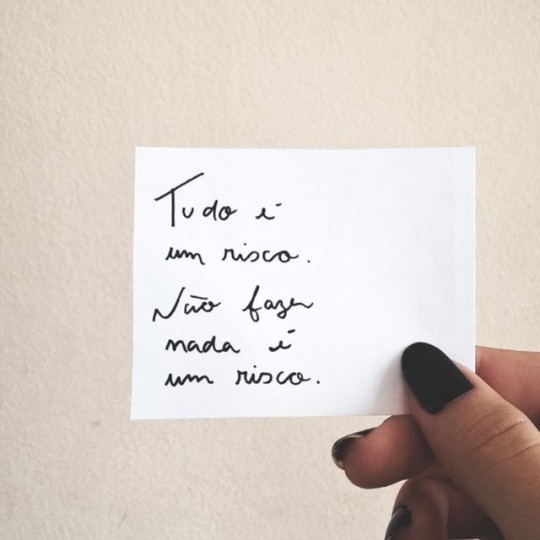 Tudo é
um risco.
Não fazer
nada é
um risco.